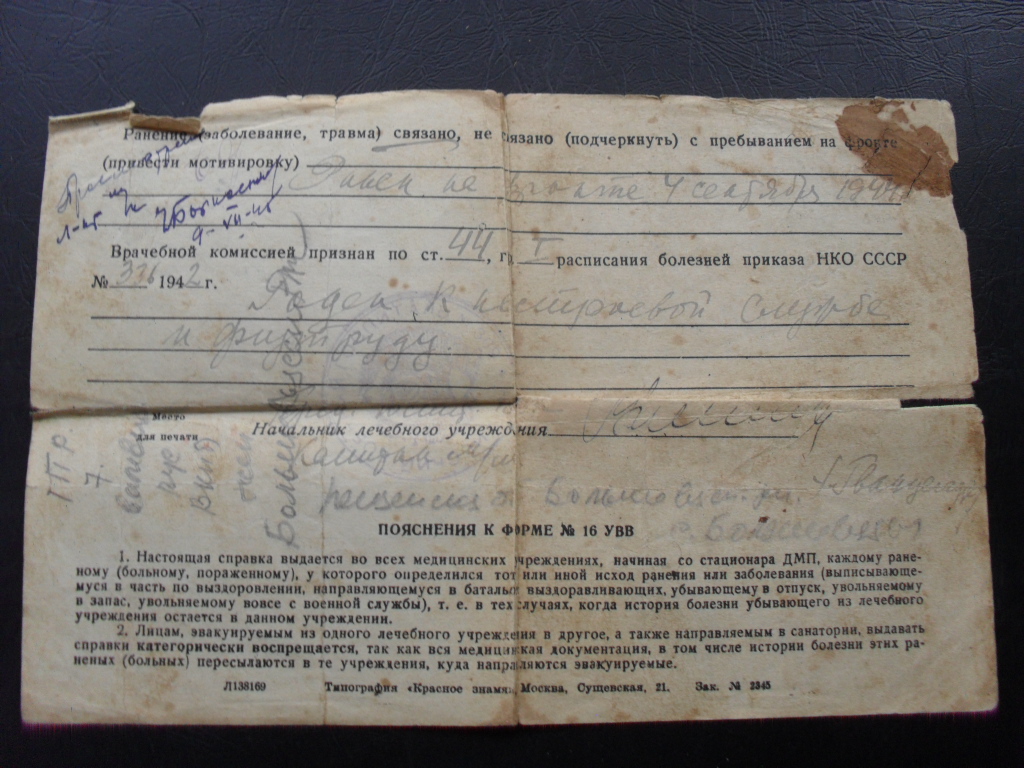 Ранение (заболевание, травма) связано, не связано (подчеркнуть) с пребыванием на фронте
(привести мотивировку)
Ранен на фронте 4 сентября 194
9-VII-45
Врачебной комиссией признан по ст. 44, гр. I расписания болезней приказа НКО СССР
№ 336 1942 г.
Годен к нестроевой службе
и физтруду.
Место
для печати
Начальник лечебного учреждения
Капитан м/с
ПОЯСНЕНИЯ К ФОРМЕ № 16 УВВ
1. Настоящая справка выдается во всех медицинских учреждениях, начиная со стационара ДМП, каждому ране-
ному (больному, пораженному), у которого определился тот или иной исход ранения или заболевания (выписывающе-
муся в часть по выздоровлении, направляющемуся в батальон выздоравливающих, убывающему в отпуск, увольняемому
в запас, увольняемому вовсе с военной службы), т. е. в тех случаях, когда история болезни убывающего из лечебного
учреждения остается в данном учреждении.
2. Лицам, эвакуируемым из одного лечебного учреждения в другое, а также направляемым в санатории, выдавать
справки категорически воспрещается, так как вся медицинская документация, в том числе истории болезни этих ра-
неных (больных) пересылаются в те учреждения, куда направляются эвакуируемые.
Л138169 Типография «Красное знамя», Москва, Сущевская, 21. Зак. № 2345